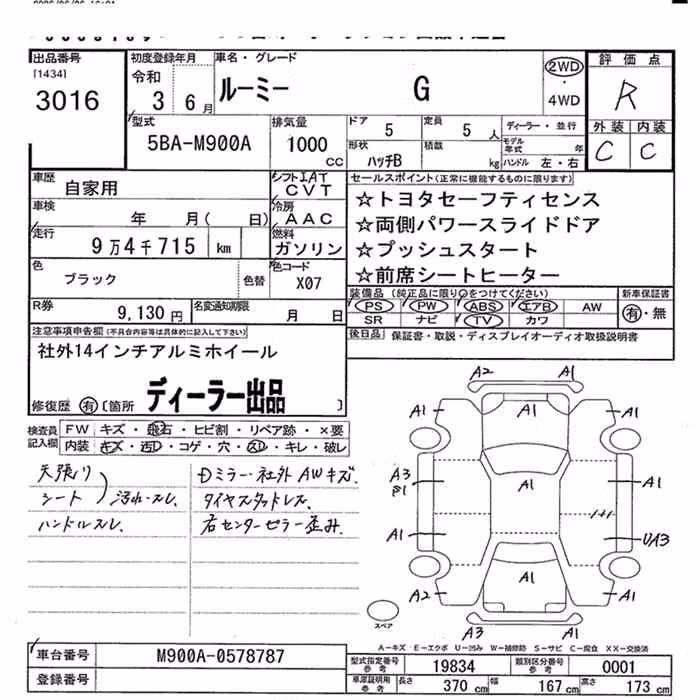 出品番号 初度登録年月 車名・グレード 2WD 評価点
[1434] 令和
3016 3年 6月 ルーミー G ・ 4WD R
型式 排気量 ドア 定員 ディーラー・並行 外装 内装
5BA-M900A 1000 CC 5 5人 モデル年式 年 C C
形状 積載
ハッチB kg ハンドル 左・右
車歴 自家用 シフト IAT CVT セールスポイント(正常に機能するものに限ります)
車検 年 月( 日) 冷房 AAC ☆トヨタセーフティセンス
走行 9万4千715 km 燃料 ガソリン ☆両側パワースライドドア
色 ブラック 色替 色コード X07 ☆プッシュスタート
☆前席シートヒーター
R券 9,130円 名変通知期限 月 日 装備品(純正品に限り○をつけてください) 新車保証書
PS PW ABS エアB AW 有・無
SR ナビ TV カワ
注意事項申告欄(不具合内容等は具体的に記入して下さい) 後日品 保証書・取説・ディスプレイオーディオ取扱説明書
社外14インチアルミホイール
ディーラー出品
修復歴 有 〔箇所 〕
検査員記入欄 FW キズ・飛石・ヒビ割・リペア跡・×要
内装 キズ・汚レ・コゲ・穴・スレ・キレ・破レ
天張り Dミラー・社外AWキズ.
シート 汚れ・スレ. タイヤスタッドレス.
ハンドルスレ. 右センターピラー歪み.
A2 A1
A1 A1 A1
A3 A1 A1
A1 UA3
A2 A1 A1
A3 A1
スペア
A-キズ E-エクボ U-凹み W-補修跡 S-サビ C-腐食 XX-交換済
車台番号 M900A-0578787 型式指定番号 参考 19834 類別区分番号 参考 0001
登録番号 車庫証明用 参考 長さ 370 cm 幅 167 cm 高さ 173 cm